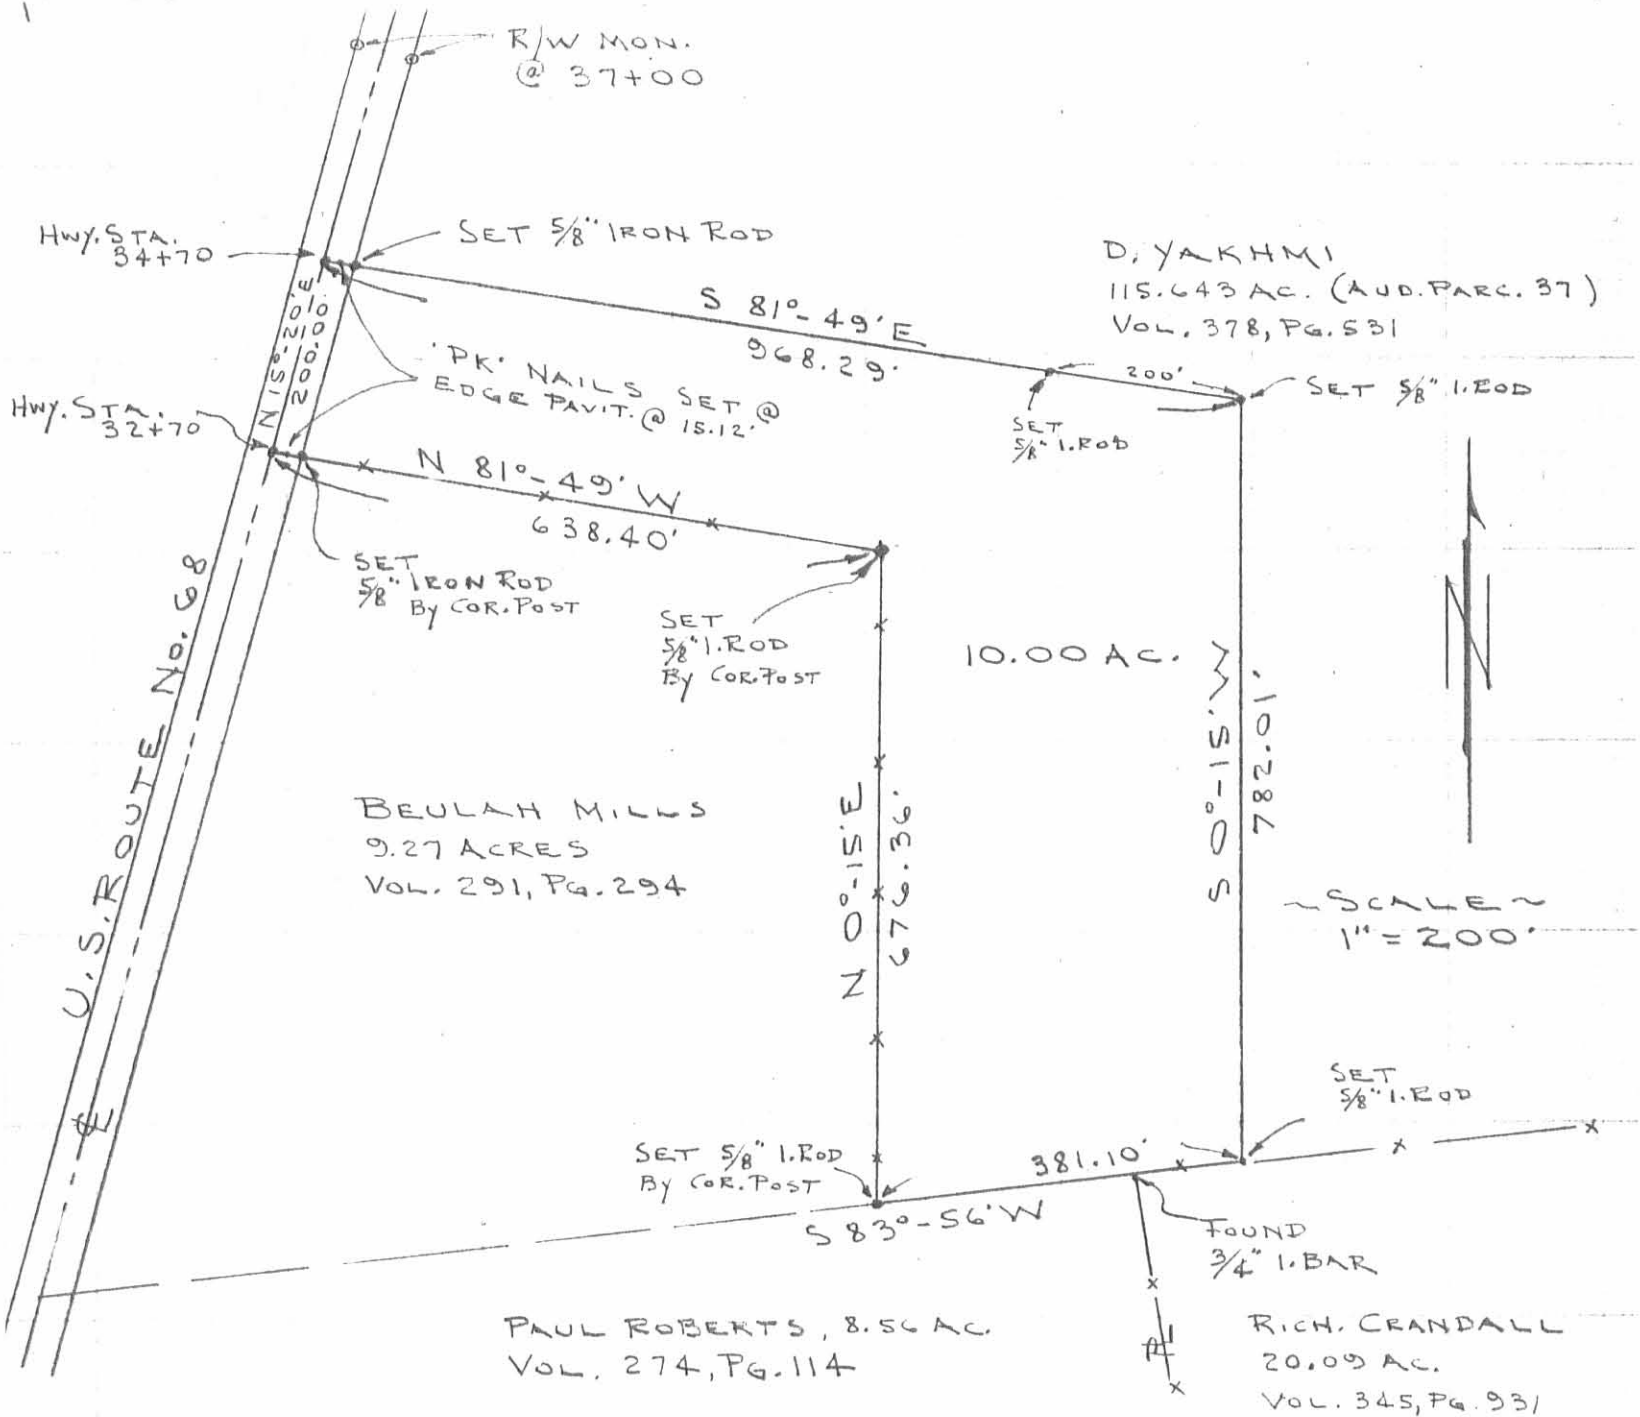 R/W MON.
@ 37+00
HWY. STA.
34+70
SET 5/8" IRON ROD
D. YAKHMI
115.643 AC. (AUD. PARC. 37)
VOL. 378, PG. 531
S 81°-49' E
968.29'
200'
SET 5/8" I. ROD
SET
5/8" I. ROD
N 15°-20' E
200.00'
'PK' NAILS SET @
EDGE PAV'T. @ 15.12'
HWY. STA.
32+70
N 81°-49' W
638.40'
SET
5/8" IRON ROD
By COR. POST
SET
5/8" I. ROD
By COR. POST
10.00 AC.
S 0°-15' W
782.01'
N
U.S. ROUTE No. 68
BEULAH MILLS
9.27 ACRES
VOL. 291, PG. 294
N 0°-15' E
676.36'
~ SCALE ~
1" = 200'
SET
5/8" I. ROD
SET 5/8" I. ROD
By COR. POST
381.10'
S 83°-56' W
FOUND
3/4" I. BAR
PAUL ROBERTS, 8.56 AC.
VOL. 274, PG. 114
RICH. CRANDALL
20.09 AC.
VOL. 345, PG. 931